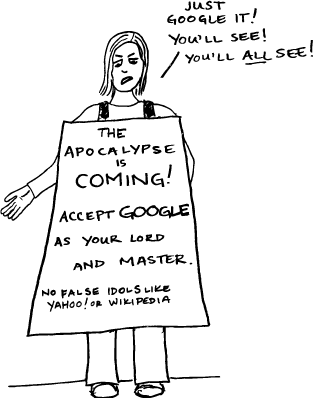 JUST
GOOGLE IT!
YOU'LL SEE!
YOU'LL ALL SEE!
THE
APOCALYPSE
IS
COMING!
ACCEPT GOOGLE
AS YOUR LORD
AND MASTER.
NO FALSE IDOLS LIKE
YAHOO! OR WIKIPEDIA